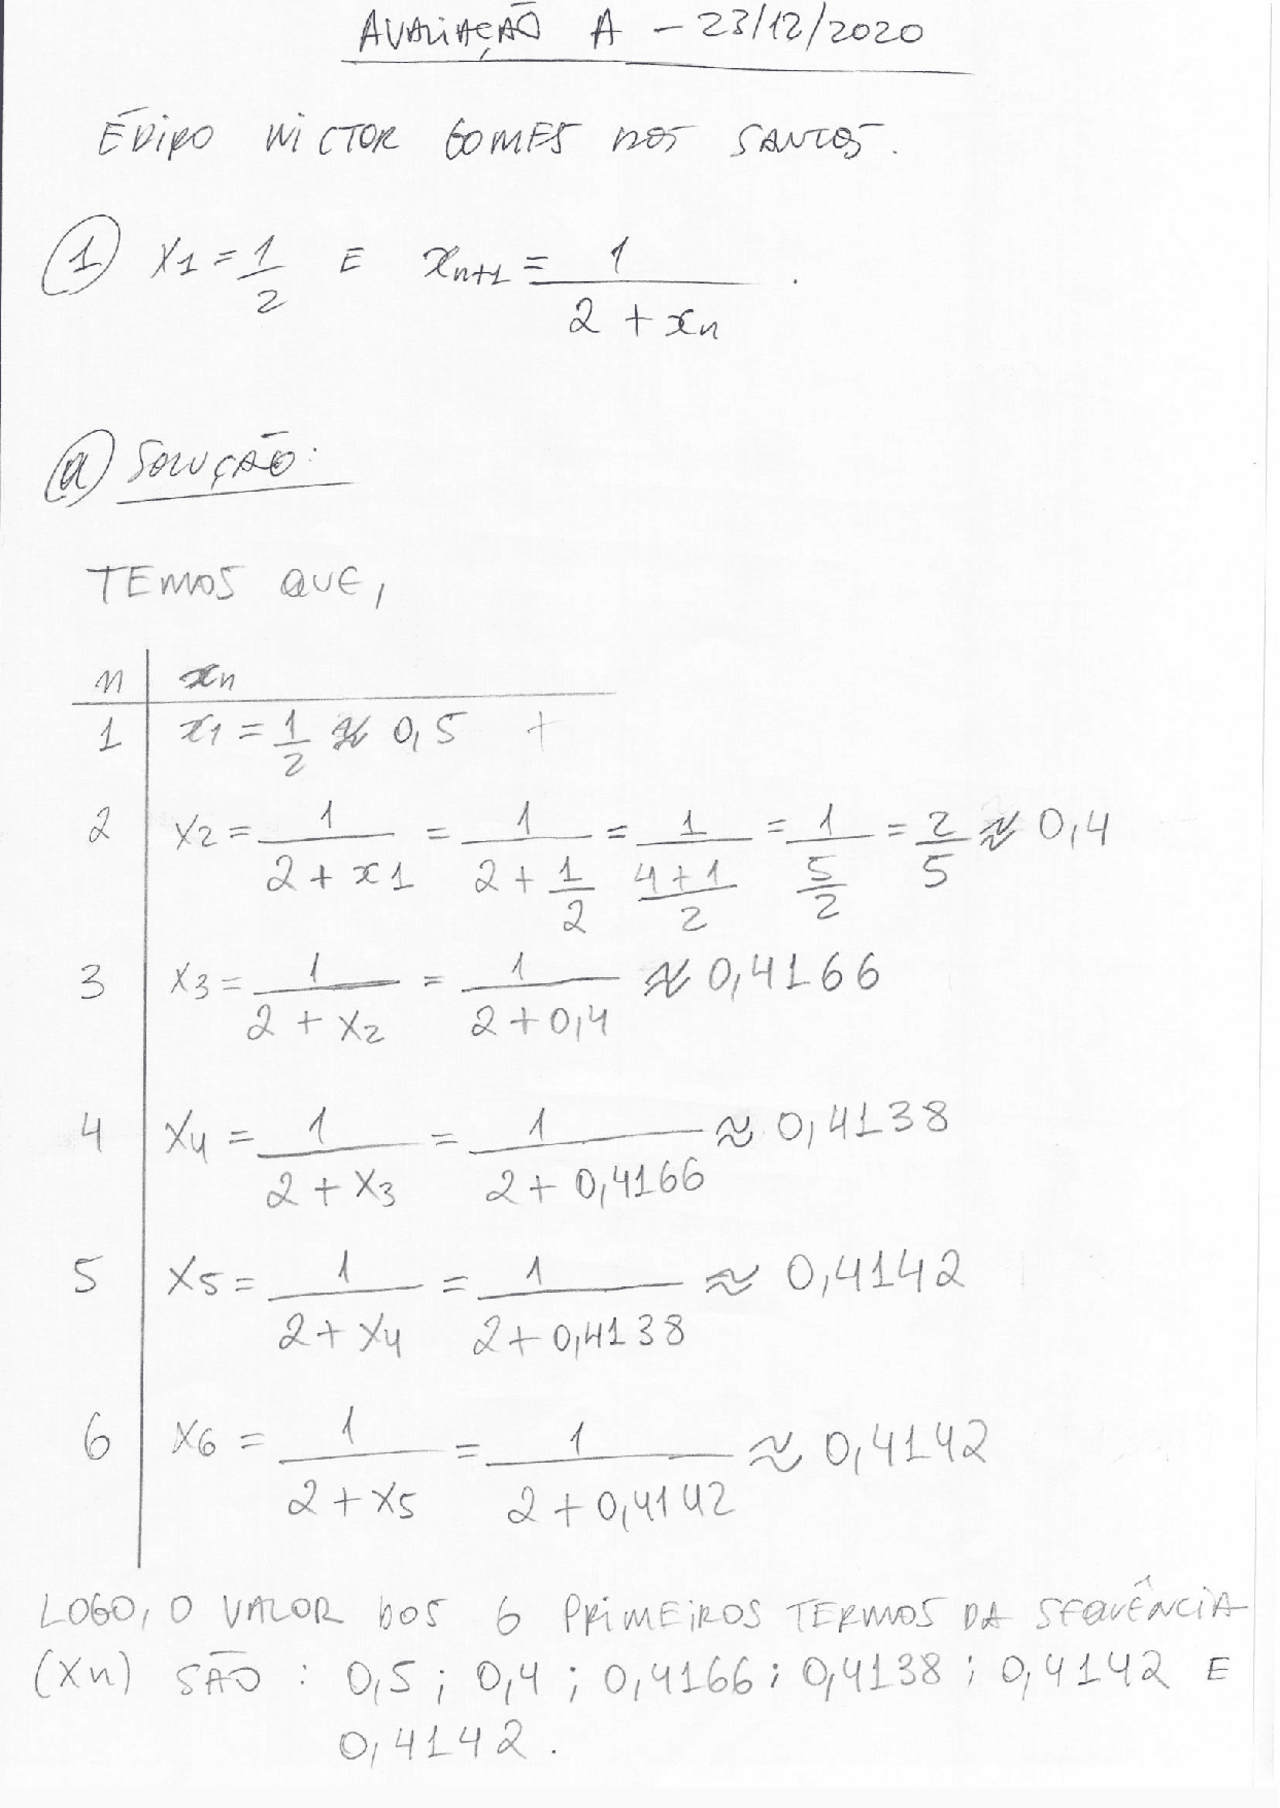 AVALIAÇÃO A - 23/12/2020
ÉDIPO WICTOR GOMES DOS SANTOS.
1 X1 = 1/2 E xn+1 = 1/(2 + xn) .
a SOLUÇÃO:
TEMOS QUE,
n xn
1 x1 = 1/2 ≈ 0,5 +
2 X2 = 1/(2 + x1) = 1/(2 + 1/2) = 1/((4+1)/2) = 1/(5/2) = 2/5 ≈ 0,4
3 X3 = 1/(2 + X2) = 1/(2 + 0,4) ≈ 0,4166
4 X4 = 1/(2 + X3) = 1/(2 + 0,4166) ≈ 0,4138
5 X5 = 1/(2 + X4) = 1/(2 + 0,4138) ≈ 0,4142
6 X6 = 1/(2 + X5) = 1/(2 + 0,4142) ≈ 0,4142
LOGO, O VALOR DOS 6 PRIMEIROS TERMOS DA SEQUÊNCIA
(Xn) SÃO : 0,5 ; 0,4 ; 0,4166 ; 0,4138 ; 0,4142 E
0,4142 .